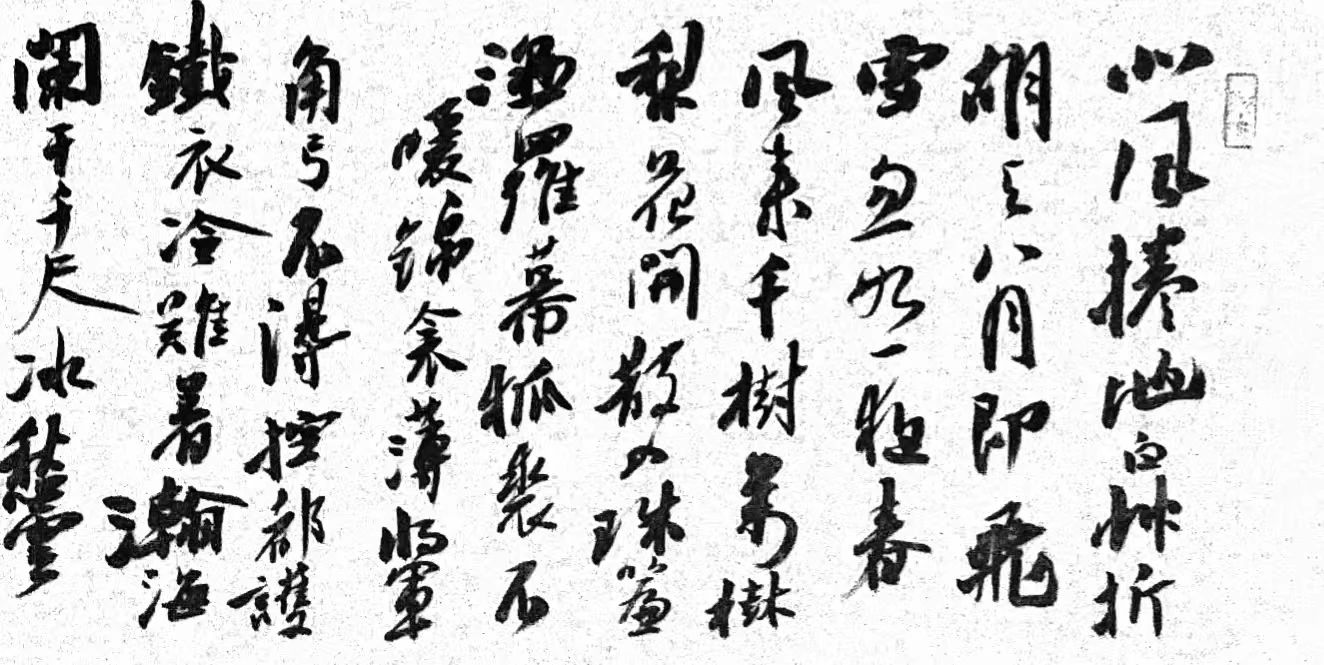 北風捲地白艸折
胡天八月即飛
雪忽如一夜春
風來千樹萬樹
梨花開散入珠簾
濕羅幕狐裘不
暖錦衾薄將軍
角弓不得控都護
鐵衣冷難着瀚海
闌干千尺冰愁雲